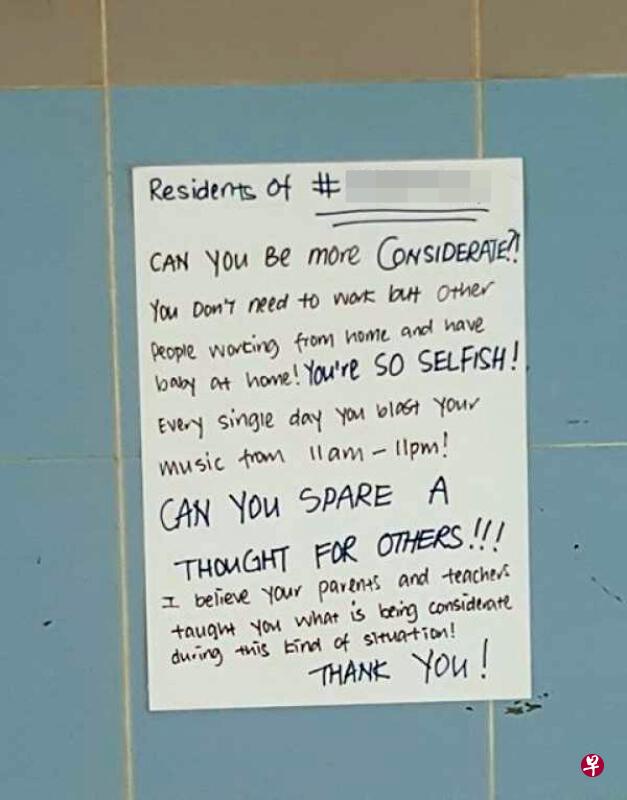 Residents of #
CAN YOU BE more CONSIDERATE?!
You DON'T need to work but other
people working from home and have
baby at home! You're SO SELFISH!
Every single day you blast your
music from 11am - 11pm!
CAN YOU SPARE A
THOUGHT FOR OTHERS!!!
I believe your parents and teachers
taught you what is being considerate
during this kind of situation!
THANK YOU!
早